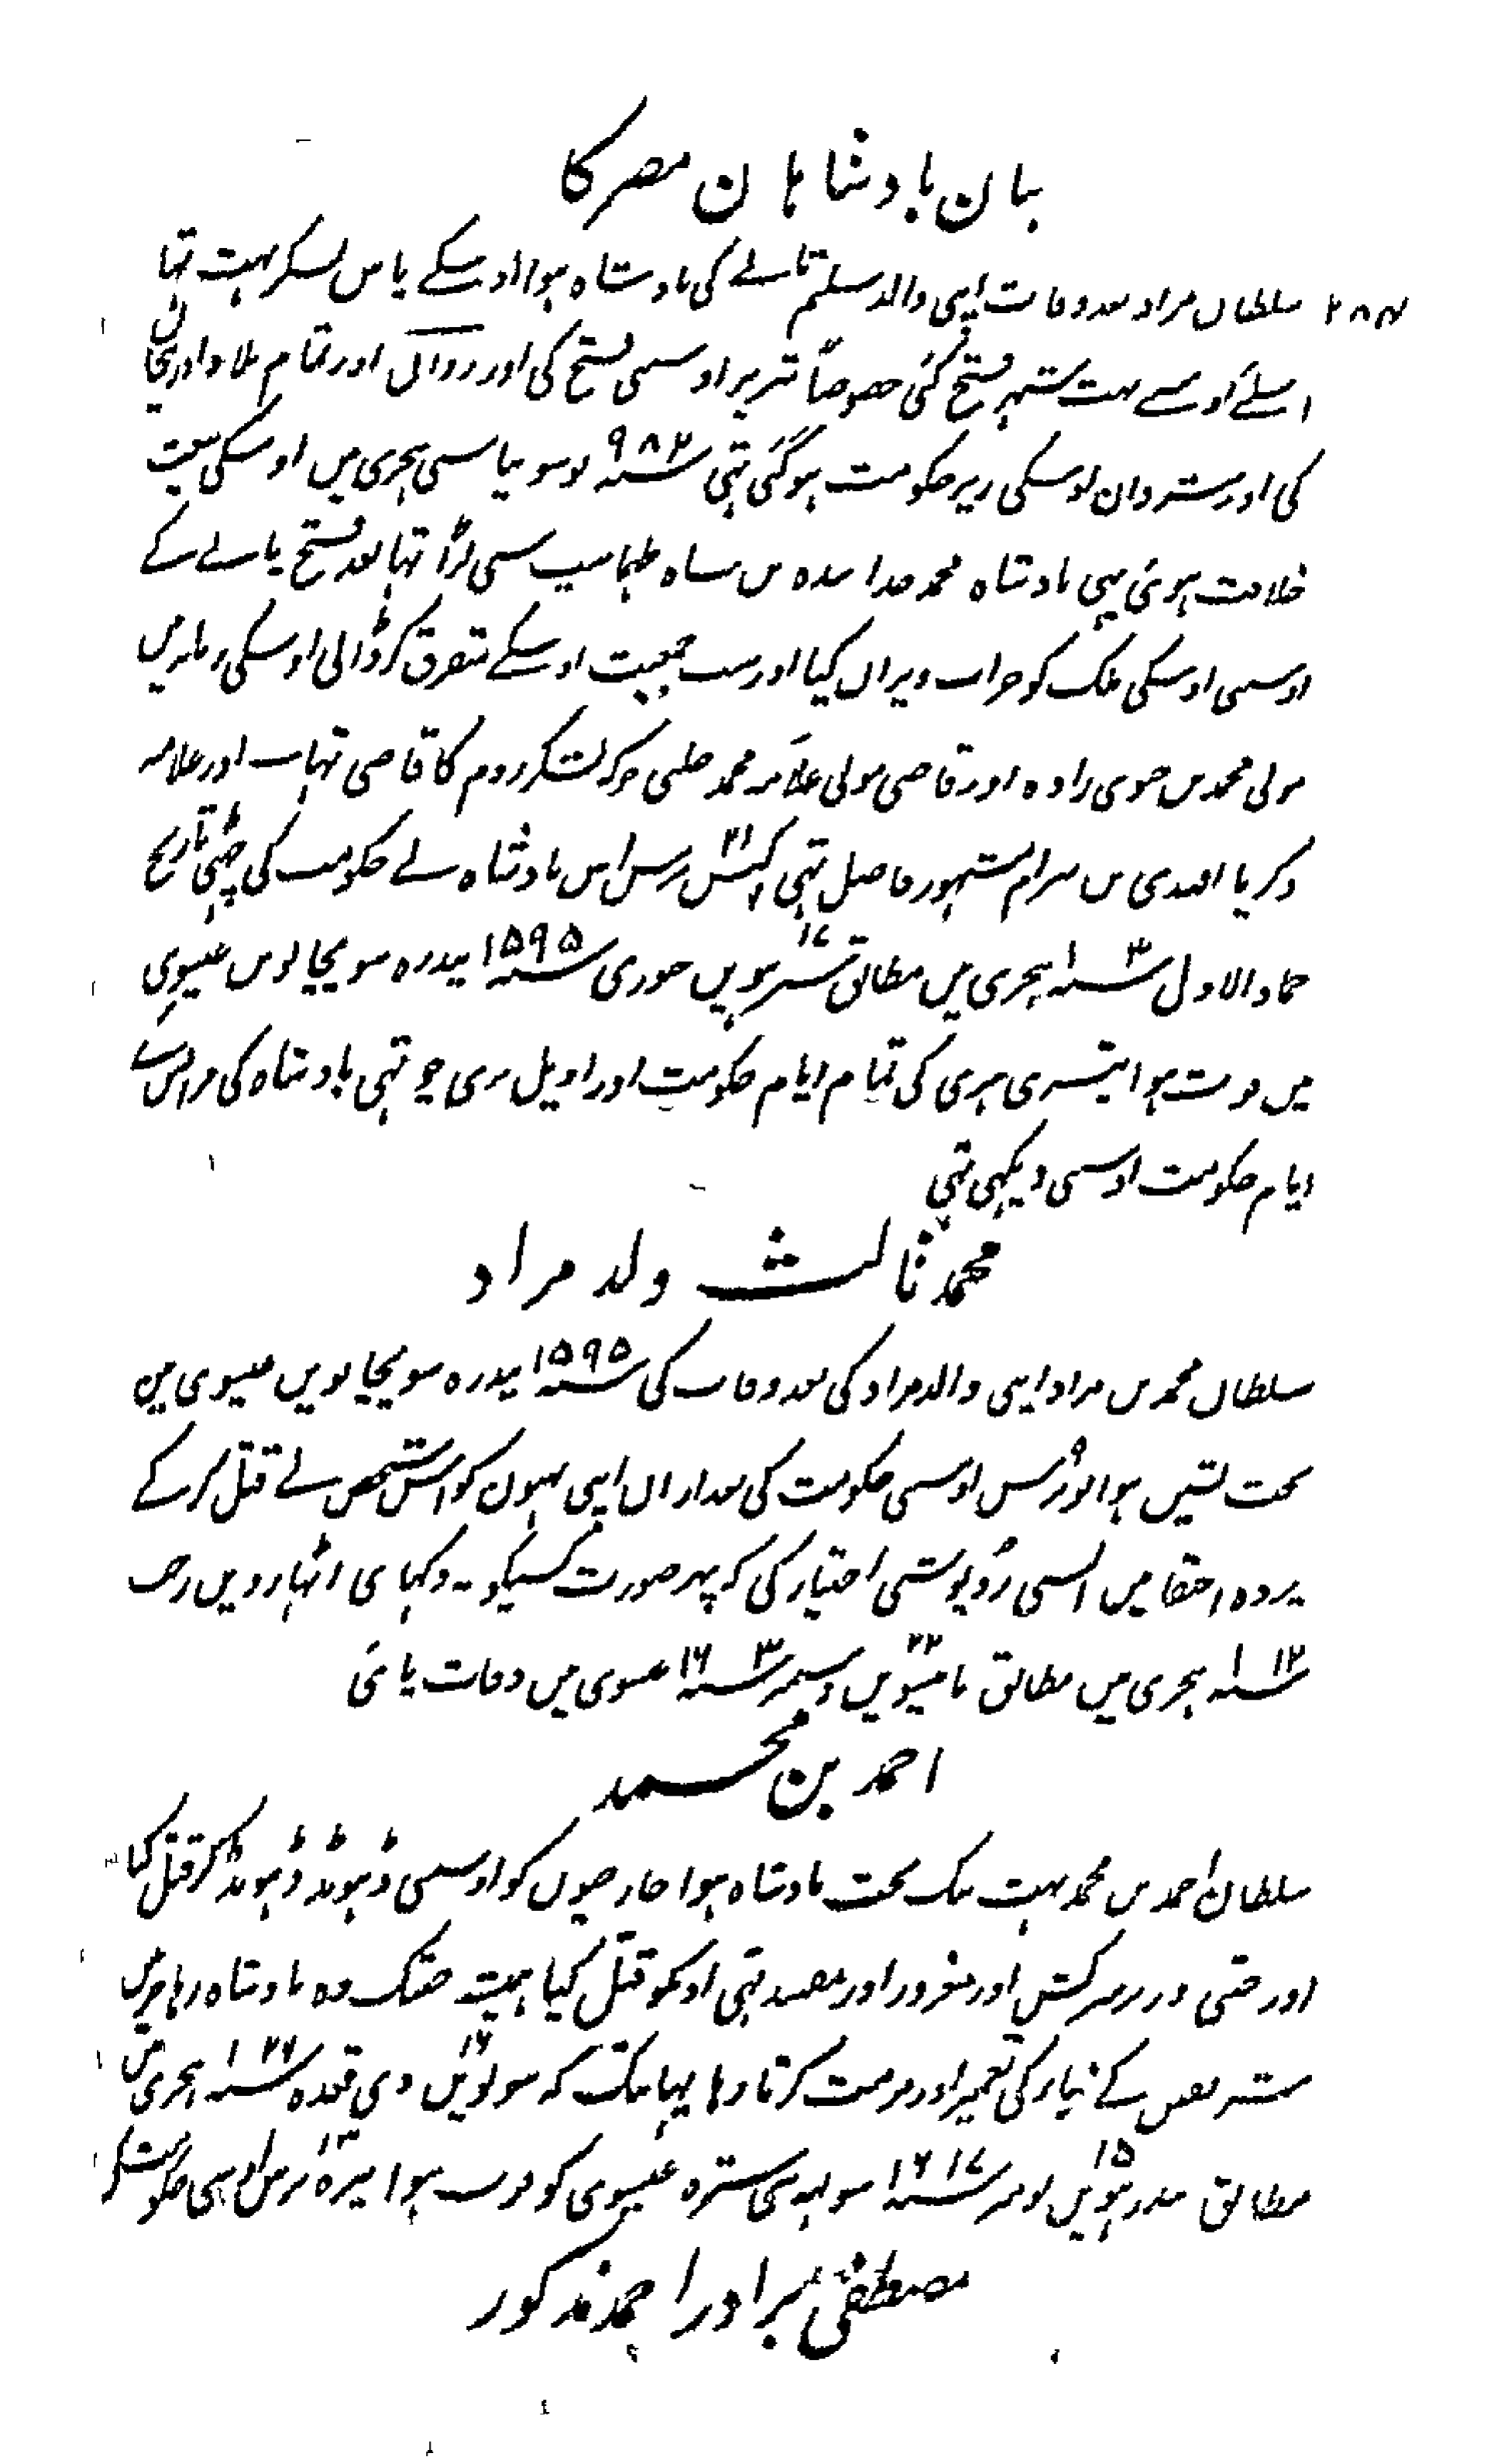 بیان بادشاہان مصر کا
۲۸۴ سلطان مراد بعد وفات اپنی والد سلیم ثانے کی بادشاہ ہوا اوسکے پاس لشکر بہت تہا
اسلئے اوسے بہت شہر فتح کئی خصوصاً تبریز اوسی فتح کی اور اور تمام بلاد اذربیجان
کی اور شروان اوسکی زیر حکومت ہوگئی تہی ۹۸۲ سنہ نوسو بیاسی ہجری میں اوسکی بیعت
خلافت ہوئی یہی بادشاہ محمد خدا بندہ بن شاہ طہماسپ سی لڑا تہا بعد فتح پانے کے
اوسی اوسکی ملک کو خراب ویران کیا اور سب جمعیت اوسکے متفرق کرڈالی اوسکی زمانہ میں
مولی محمد بن جوی زادہ اور قاضی مولی علامہ محمد حلبی جو کہ لشکر روم کا قاضی تہا اور علامہ
زکریا افندی بن بہرام مشہور فاضل تہی اکیس ۲۱ برس اس بادشاہ نے حکومت کی چہٹی تاریخ
جماد الاول سنہ ۱۰۰۳ ہجری میں مطابق سترہویں ۱۷ جنوری سنہ ۱۵۹۵ پندرہ سو پچانویں عیسوی
میں فوت ہوا تیسری ہنری کی تمام ایام حکومت اور اویل ہنری چوتہی بادشاہ کی فرانس کے
ایام حکومت اوسی دیکہی تہی
محمد ثالث ولد مراد
سلطان محمد بن مراد اپنی والد مراد کی بعد وفات کی سنہ ۱۵۹۵ پندرہ سو پچانویں عیسوی مین
تخت نشین ہوا نو ۹ برس اوسی حکومت کی بعد ازاں اپنی بہنون کو اس شخص نے قتل کر کے
پردہ اخفا میں ایسی روپوشی اختیار کی کہ پہر صورت کسیکو نہ دکہای اٹہارویں رجب
سنہ ۱۰۱۲ ہجری میں مطابق بائیسویں ۲۲ دسمبر سنہ ۱۶۰۳ عیسوی میں وفات پائی
احمد بن محمد
سلطان احمد بن محمد بہت نیک بخت بادشاہ ہوا خارجیوں کو اوسی ڈہونڈ ڈہونڈ کر قتل کیا
اور جتنی وزیر سرکش اور مغرور اور مفسد تہی اونکو قتل کیا ہمیشہ جبتک وہ بادشاہ رہا حرمین
شریفین کے بنیاد کی تعمیر اور مرمت کرتا رہا یہانتک کہ سولویں ۱۶ ذی قعدہ سنہ ۱۰۲۶ ہجری میں
مطابق پندرہویں ۱۵ نومبر سنہ ۱۶۱۷ سولہ سی سترہ عیسوی کو فوت ہوا تیرہ ۱۳ برس اوسی حکومت کی
مصطفی برادر احمد مذکور